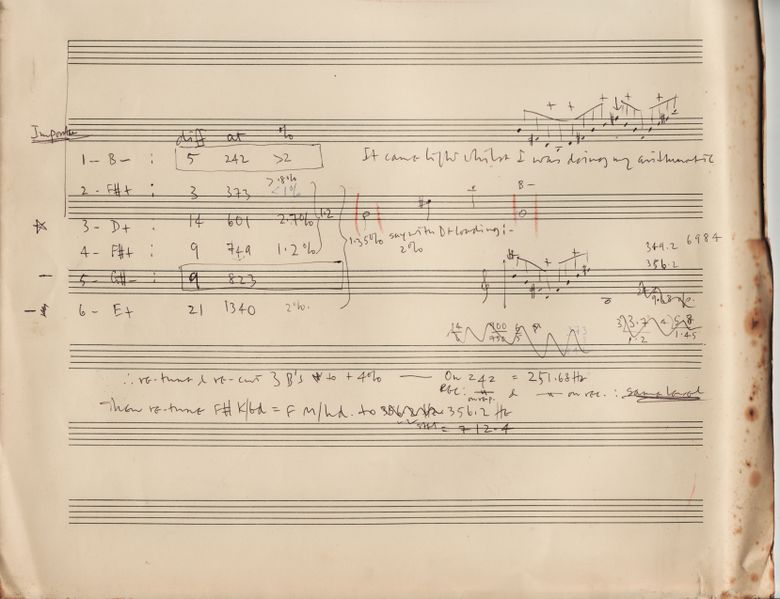 diff at %
1- B- : 5 242 >2
It came light whilst I was doing my arithmetic
2- F#+ : 3 373 >.8% <1%
B-
3- D+ : 14 601 2.7% 12
1.35% say with D+ loading:-
2%
4- F#+ : 9 749 1.2%
349.2 6984
356.2
5- G#- : 9 823
6- E+ : 21 1340 2%.
∴ re-tune & re-cut 3 B's to + 4% — On 242 = 251.68 Hz
REC: & on rec. : same level
Then re-tune F# K/bd = F M/hd. to 356.2 Hz
= 712.4